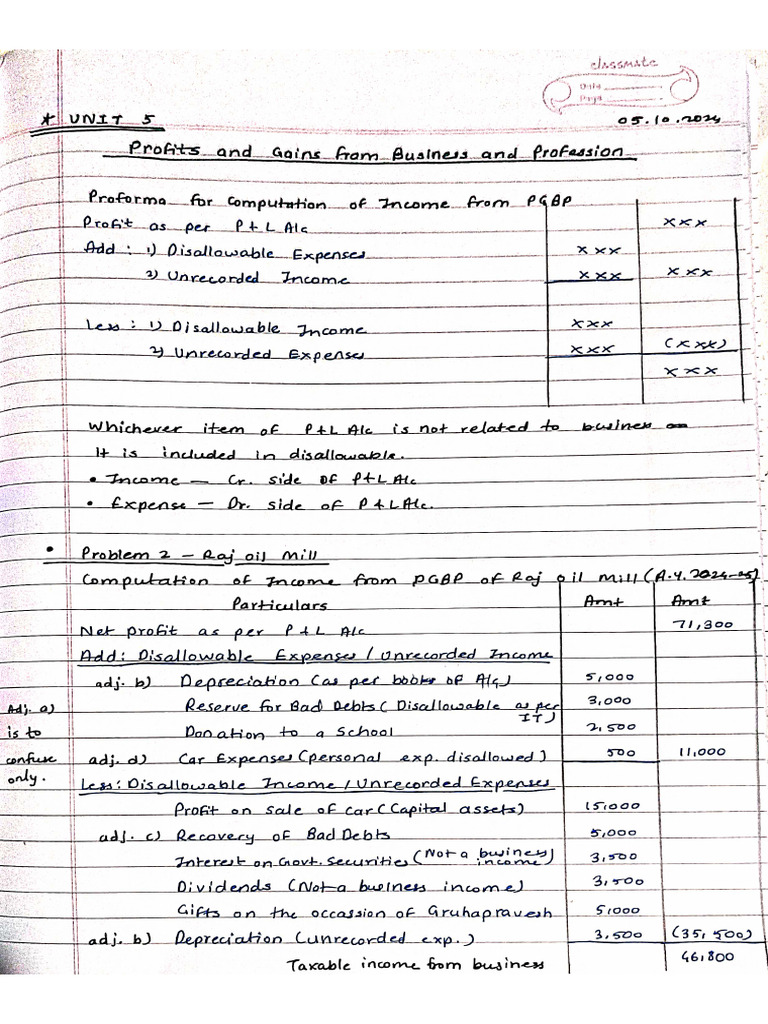 classmate
Date
Page
* UNIT 5 05.10.2024
Profits and Gains from Business and Profession
Proforma for Computation of Income from PGBP
Profit as per P+L A/c xxx
Add: 1) Disallowable Expenses xxx
2) Unrecorded Income xxx xxx
Less: 1) Disallowable Income xxx
2) Unrecorded Expenses xxx (xxx)
xxx
Whichever item of P+L A/c is not related to business
It is included in disallowable.
• Income — Cr. side of P+L A/c
• Expense — Dr. side of P+L A/c.
• Problem 2 - Raj oil Mill
Computation of Income from PGBP of Raj oil mill (A.Y. 2024-25)
Particulars Amt Amt
Net profit as per P+L A/c 71,300
Add: Disallowable Expenses / Unrecorded Income
adj. b) Depreciation (as per books of A/c) 5,000
Adj. a) is to confuse only.
Reserve for Bad Debts (Disallowable as per IT) 3,000
Donation to a School 2,500
adj. d) Car Expenses (personal exp. disallowed) 500 11,000
Less: Disallowable Income / Unrecorded Expenses
Profit on sale of car (Capital assets) 15,000
adj. c) Recovery of Bad Debts 5,000
Interest on Govt. Securities (Not a business income) 3,500
Dividends (Not a business income) 3,500
Gifts on the occassion of Gruhapravesh 5,000
adj. b) Depreciation (unrecorded exp.) 3,500 (35,500)
Taxable income from business 46,800